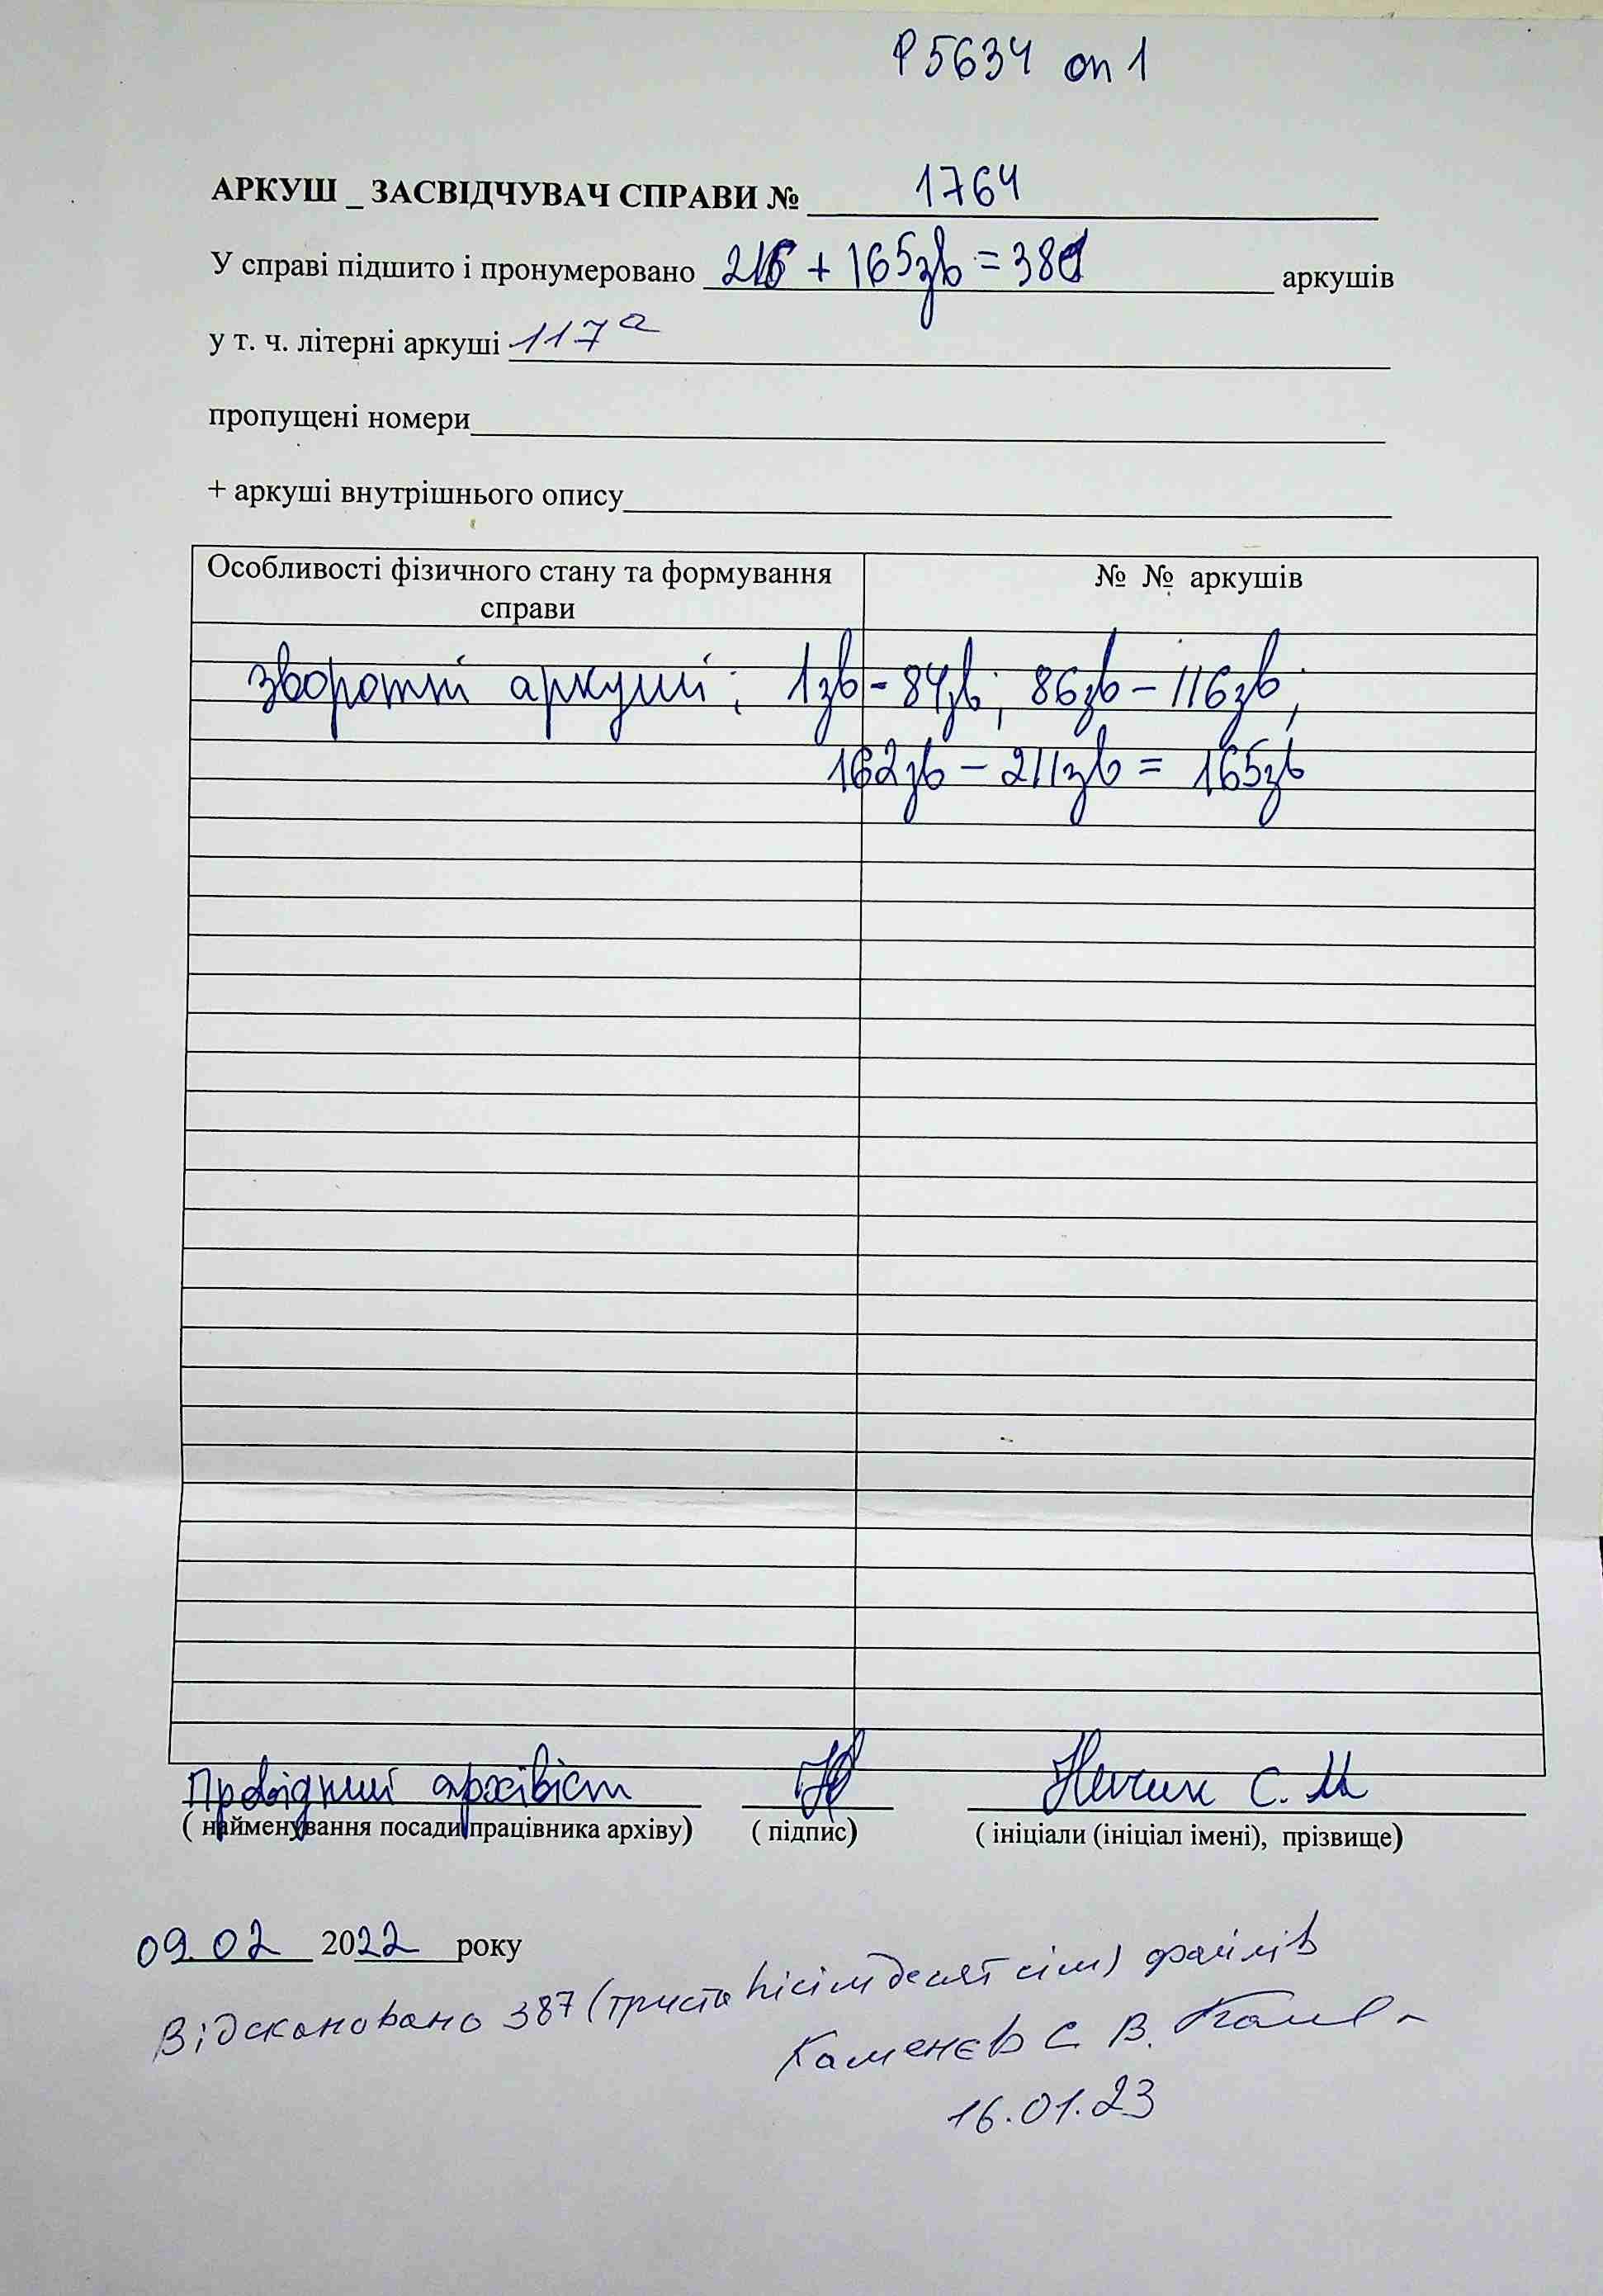 Р5634 оп 1
АРКУШ _ ЗАСВІДЧУВАЧ СПРАВИ № 1764
У справі підшито і пронумеровано 216 + 165зв = 381 аркушів
у т. ч. літерні аркуші 117а
пропущені номери
+ аркуші внутрішнього опису
Особливості фізичного стану та формування справи
№ № аркушів
зворотні аркуші: 1зв - 84зв; 86зв - 116зв;
162зв - 211зв = 165зв
Провідний архівіст
С. М
( найменування посади працівника архіву) ( підпис) ( ініціали (ініціал імені), прізвище)
09.02 2022 року
Відскановано 387 (триста вісімдесят сім) файлів
Каменєв С. В.
16.01.23